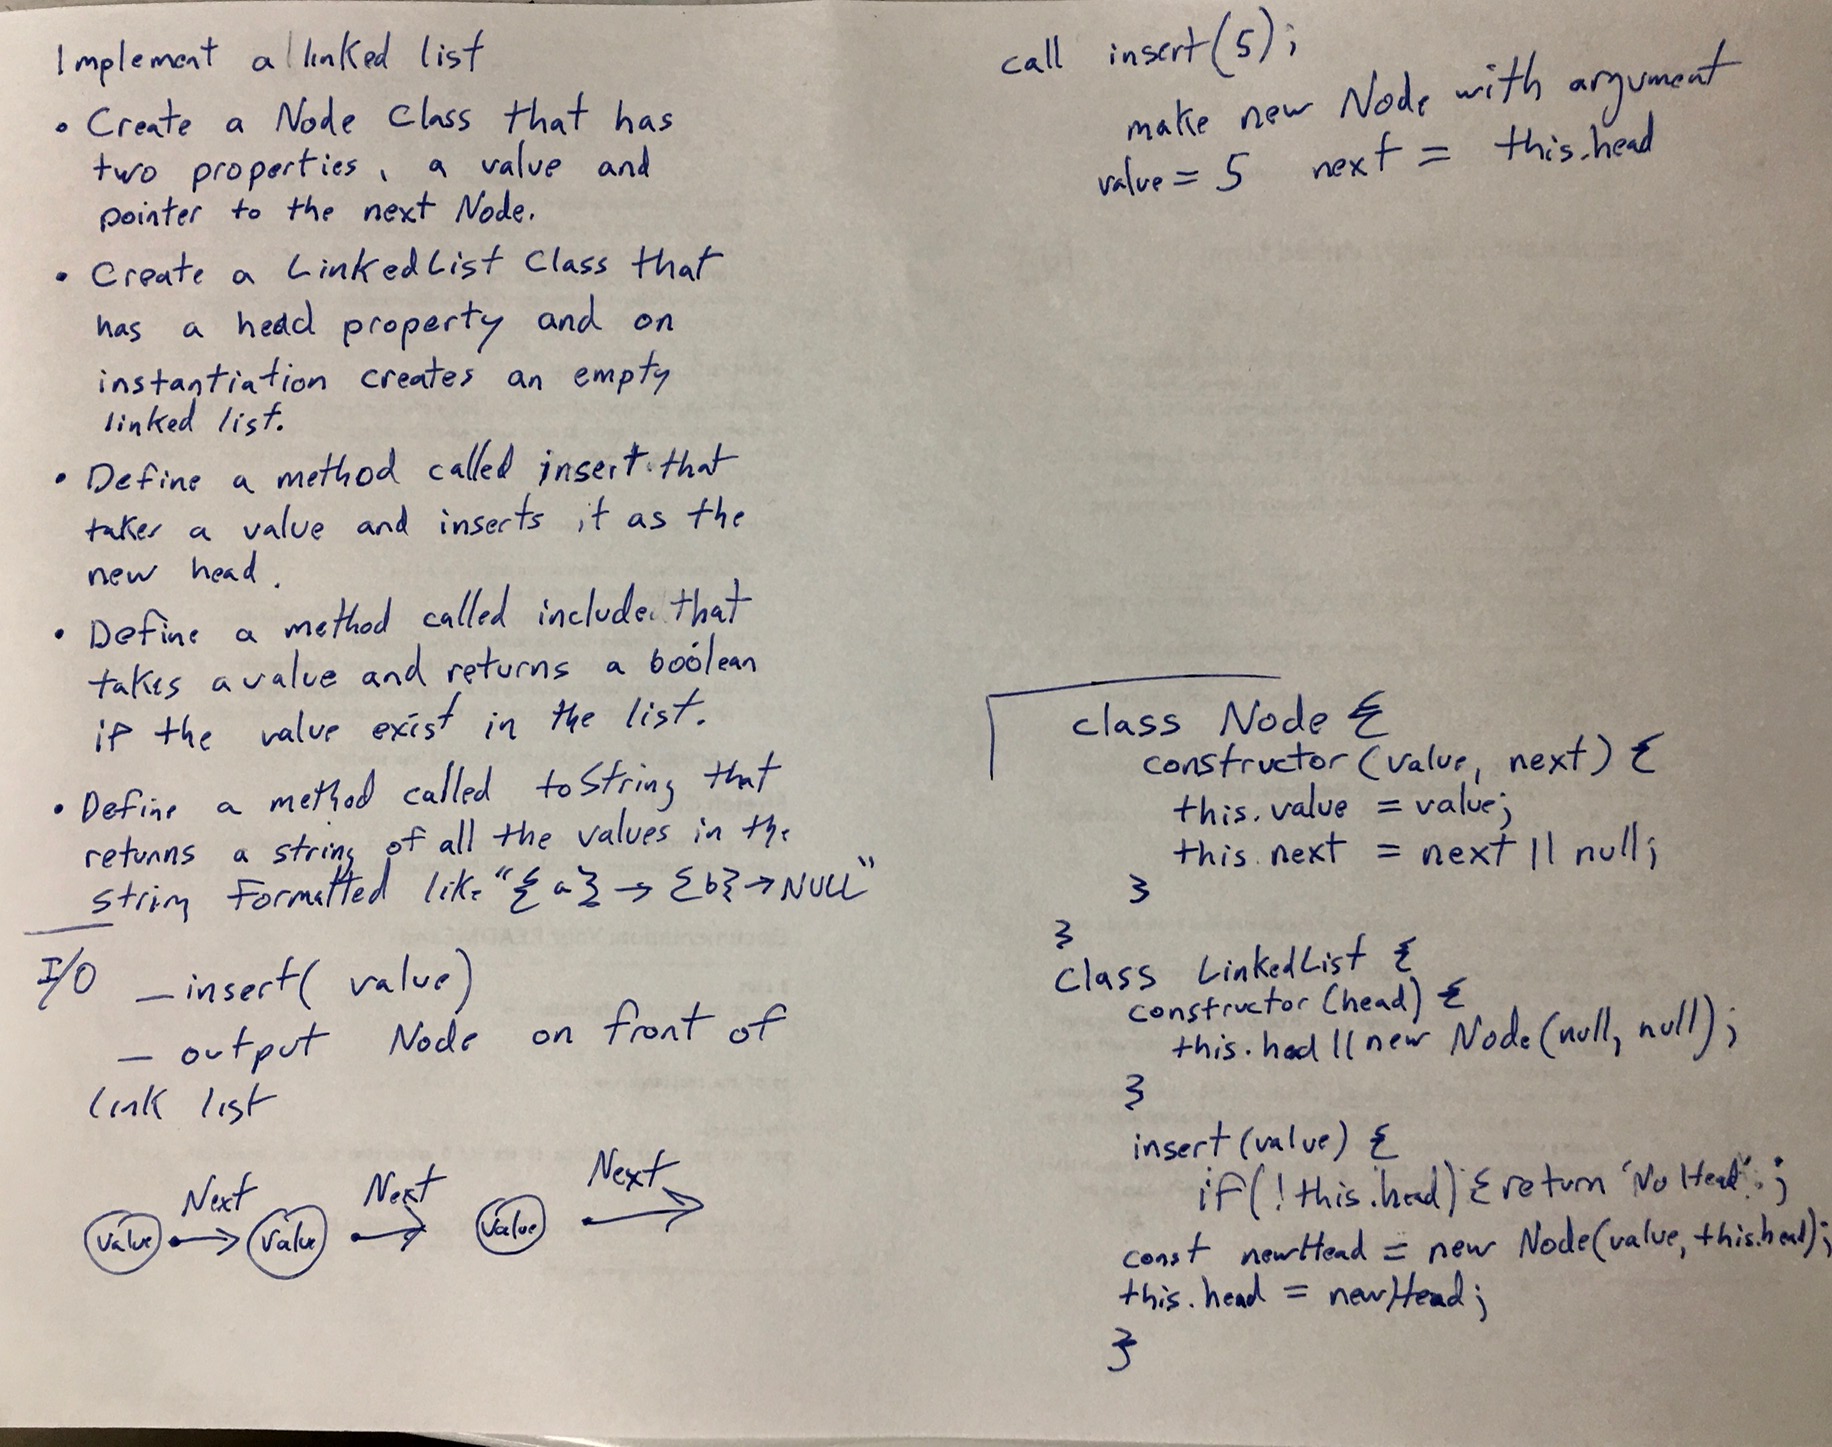 Implement a linked list
• Create a Node Class that has
two properties, a value and
pointer to the next Node.
• Create a LinkedList Class that
has a head property and on
instantiation creates an empty
linked list.
• Define a method called insert that
takes a value and inserts it as the
new head.
• Define a method called includes that
takes a value and returns a boolean
if the value exist in the list.
• Define a method called toString that
returns a string of all the values in the
string formatted like "{a} → {b} → NULL"
I/O
— insert( value)
— output Node on front of
link list
Next Next Next
value value value
call insert(5);
make new Node with argument
value = 5 next = this.head
class Node {
constructor (value, next) {
this.value = value;
this.next = next || null;
}
}
class LinkedList {
constructor (head) {
this.hed || new Node(null, null);
}
insert (value) {
if( ! this.head) { return 'No Head';
const newHead = new Node(value, this.head);
this.head = newHead;
}